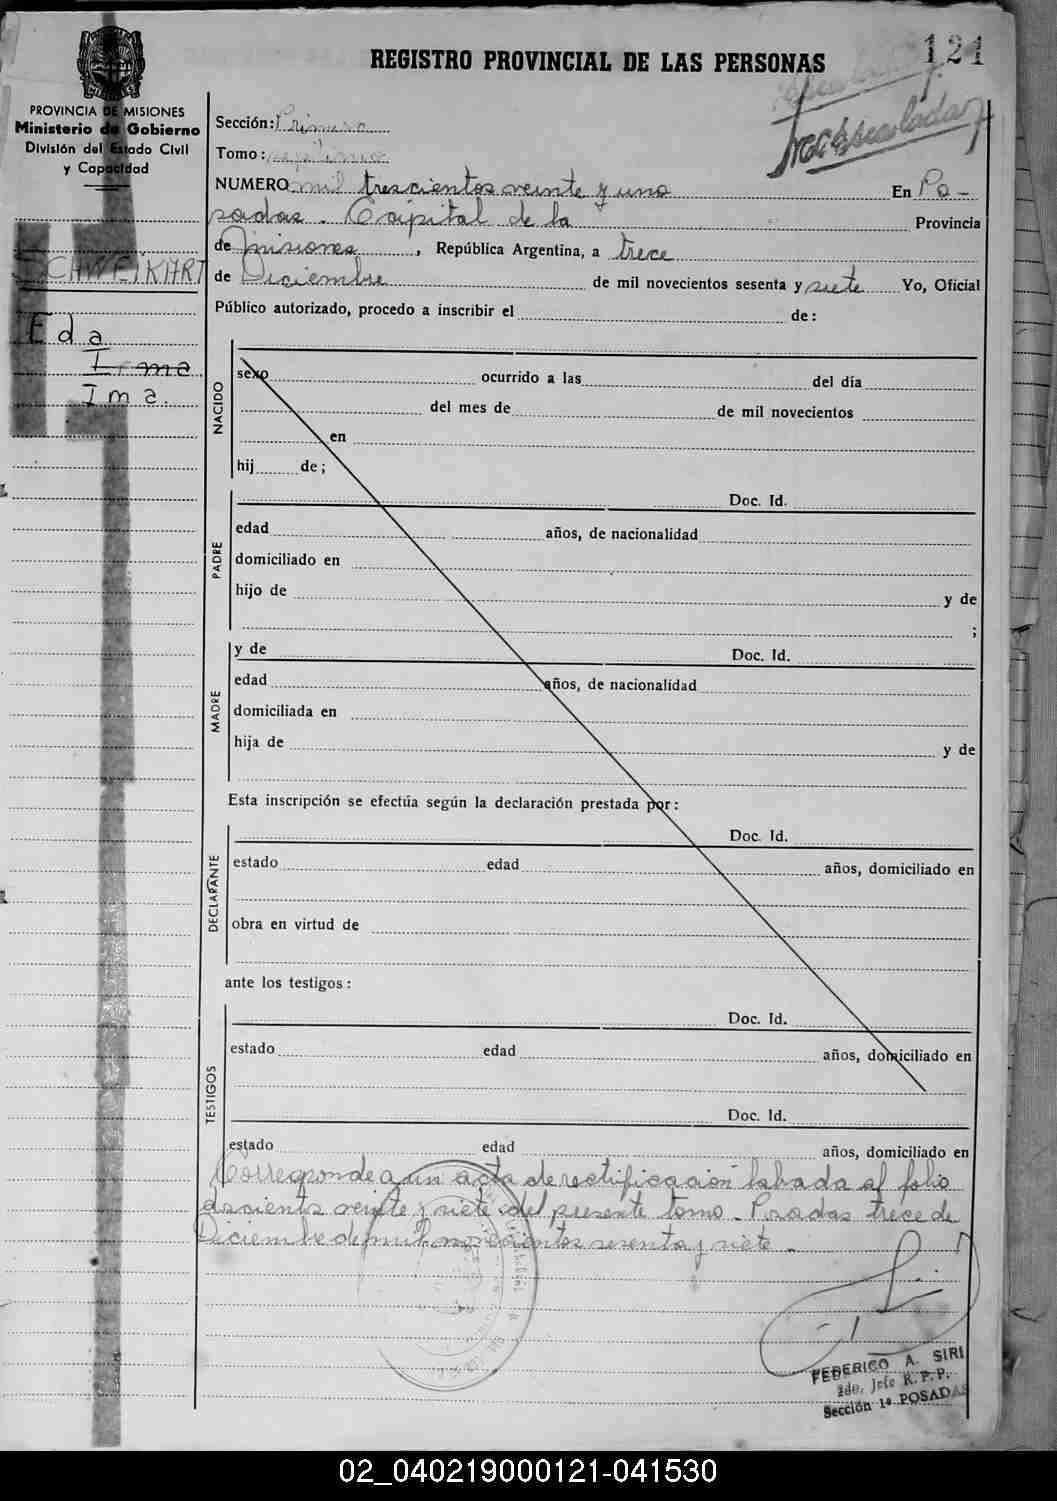 121
REGISTRO PROVINCIAL DE LAS PERSONAS
PROVINCIA DE MISIONES
Ministerio de Gobierno
División del Estado Civil
y Capacidad
Sección: Primera
Tomo: séptimo
NUMERO mil trescientos veinte y uno En Po-
sadas. Capital de la Provincia
de Misiones, República Argentina, a trece
de Diciembre de mil novecientos sesenta y siete Yo, Oficial
Público autorizado, procedo a inscribir el de:
SCHWEIKART
Eda
Irma
Ima.
NACIDO
sexo ocurrido a las del día
del mes de de mil novecientos
en
hij de;
PADRE
Doc. Id.
edad años, de nacionalidad
domiciliado en
hijo de y de
;
MADRE
y de Doc. Id.
edad años, de nacionalidad
domiciliada en
hija de y de
Esta inscripción se efectúa según la declaración prestada por:
DECLARANTE
Doc. Id.
estado edad años, domiciliado en
obra en virtud de
ante los testigos:
TESTIGOS
Doc. Id.
estado edad años, domiciliado en
Doc. Id.
estado edad años, domiciliado en
Corresponde a un acta de rectificación labada al folio
doscientos veinte y siete del presente tomo. Posadas trece de
Diciembre de mil novecientos sesenta y siete.
FEDERICO A. SIRI
2do. Jefe R.P.P.
Sección 1ª POSADAS
02_040219000121-041530